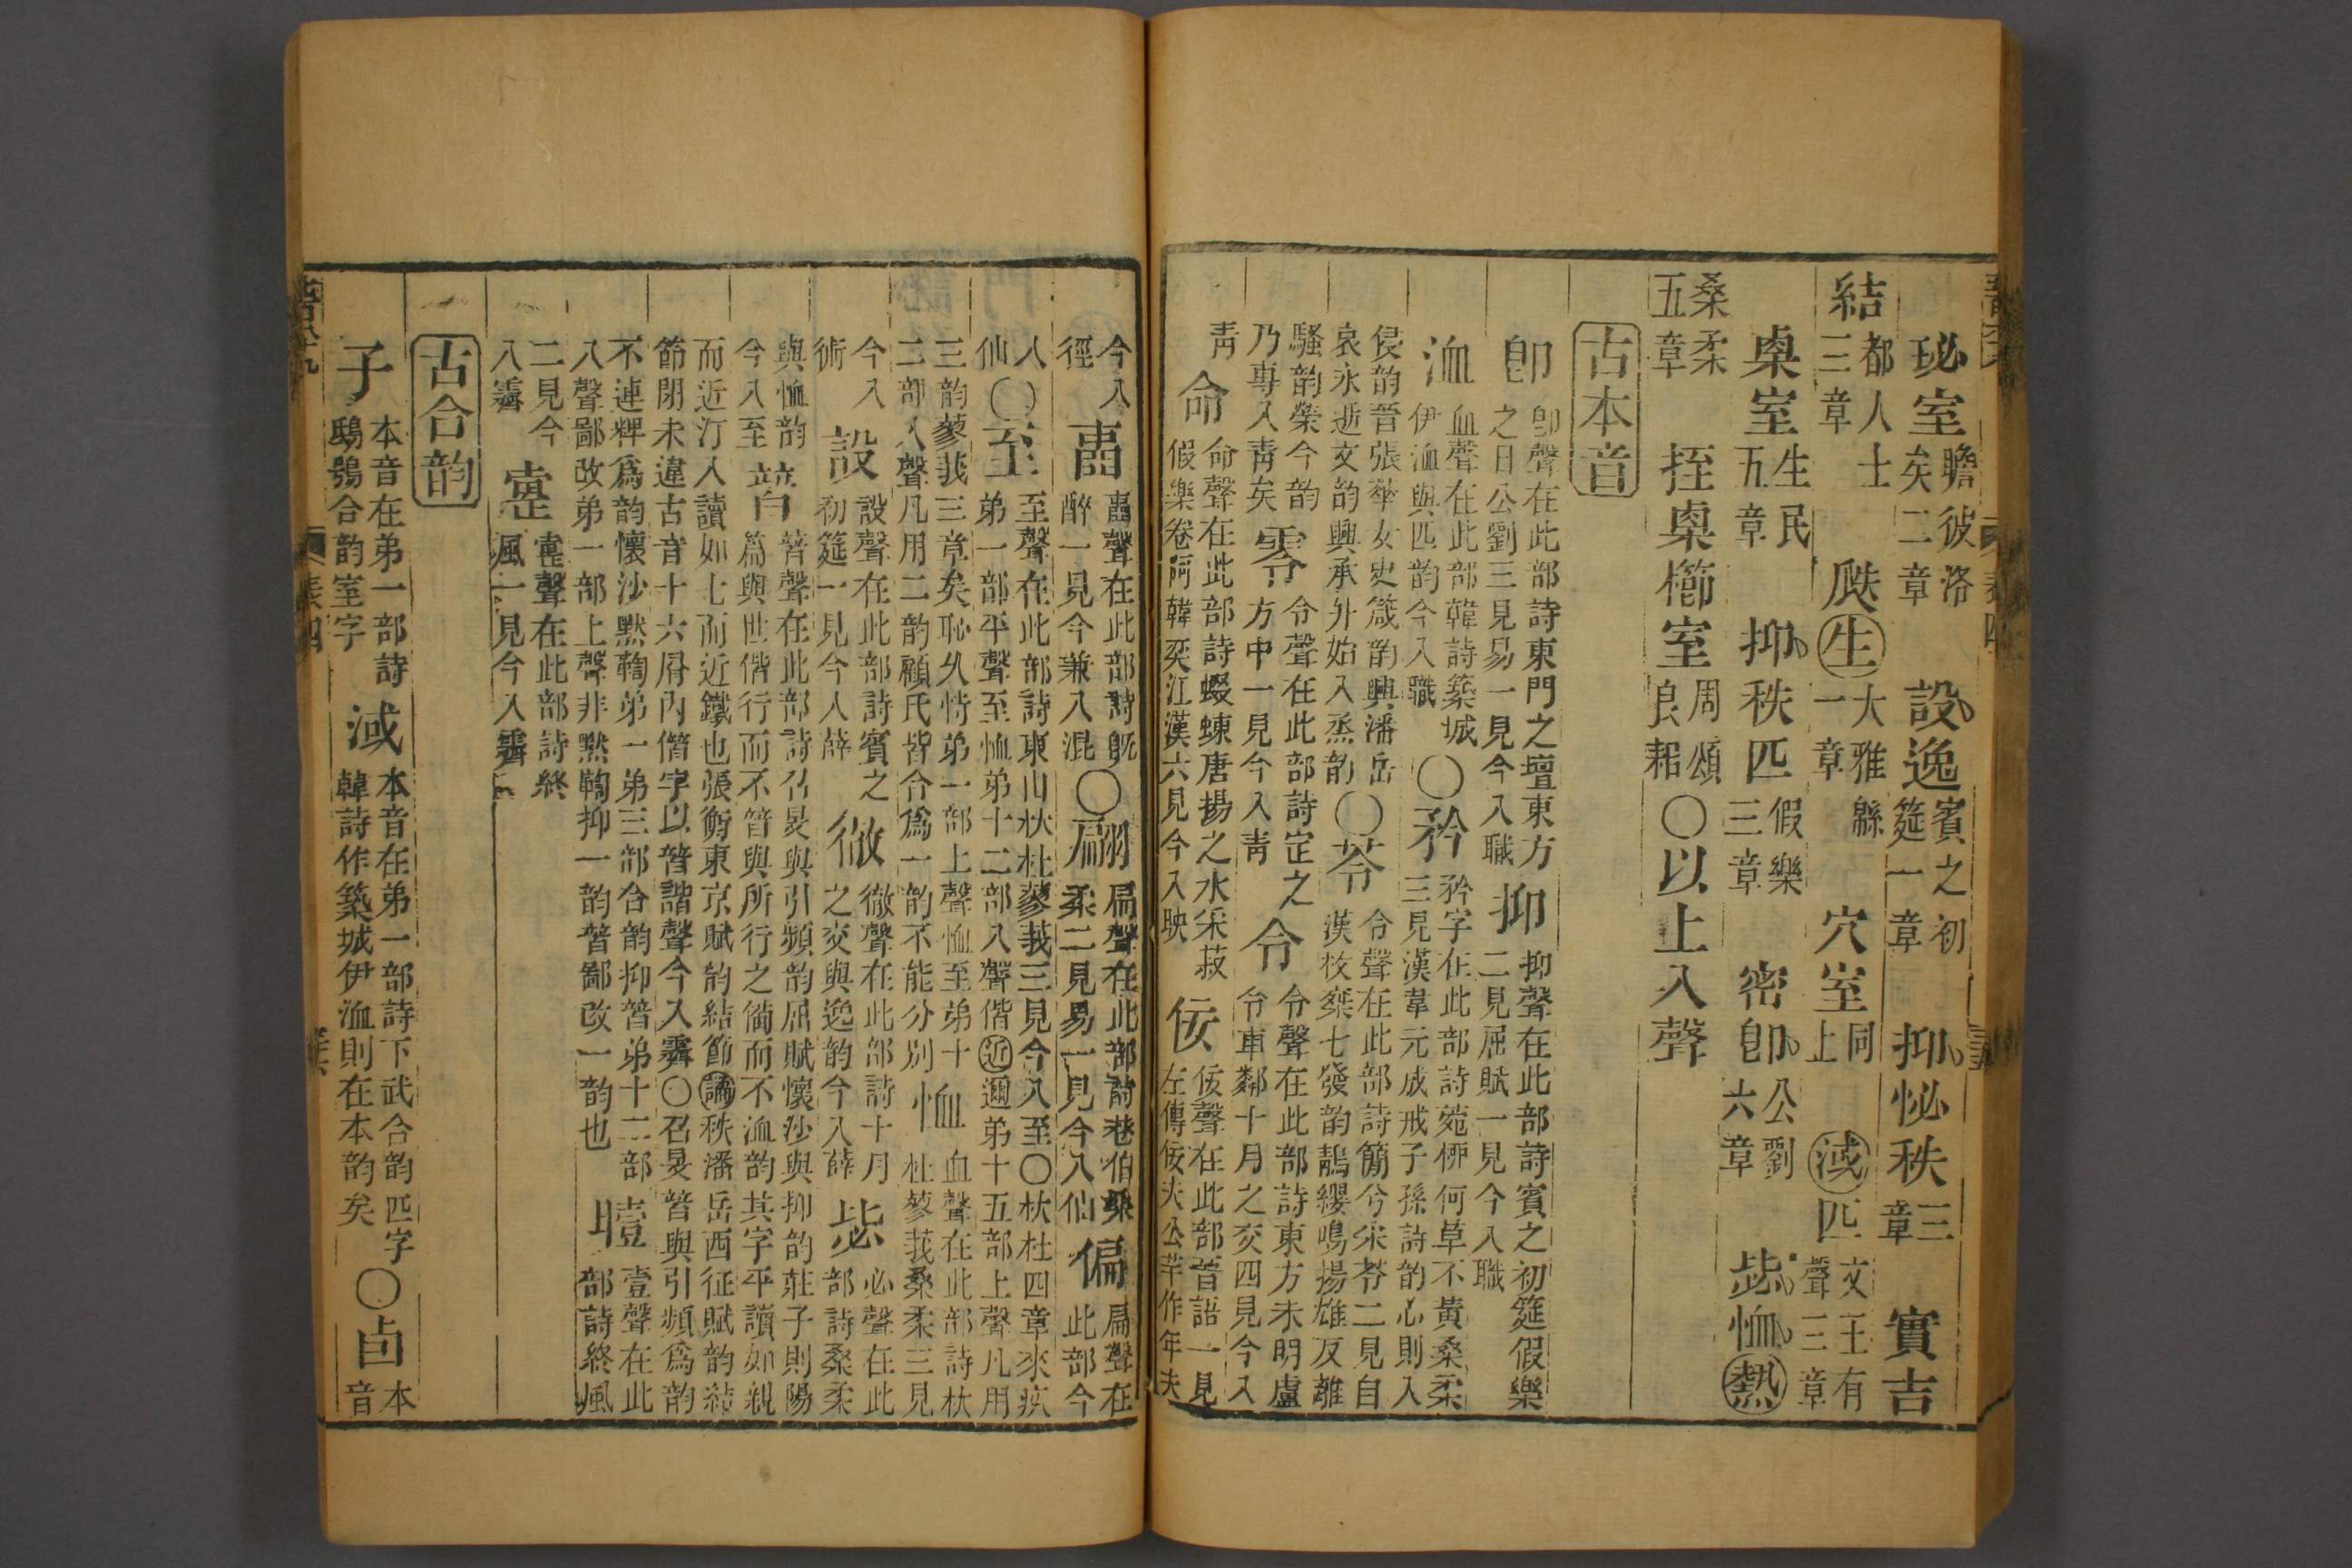 珌室瞻彼洛矣二章 設逸賓之初筵一章 抑怭秩三章 實吉
結都人士三章 瓞生大雅緜一章 穴室同上 淢匹文王有聲三章
㮚室生民五章 抑秩匹假樂三章 密卽公劉六章 毖恤熱
桑柔五章 挃㮚櫛室周頌良耜〇以上入聲
古本音
卽卽聲在此部詩東門之墠東方之日公劉三見易一見今入職 抑抑聲在此部詩賓之初筵假樂二見屈賦一見今入職
洫血聲在此部韓詩築城伊洫與匹韵今入職〇矜矜字在此部詩菀桺何草不黃桑柔三見漢韋元成戒子孫詩韵心則入
侵韵晉張華女史箴韵興潘岳哀永逝文韵興承升始入蒸韵〇苓令聲在此部詩簡兮采苓二見自漢枚椉七發韵鵲纓鳴揚雄反離
騷韵榮今韵乃專入靑矣 零令聲在此部詩定之方中一見今入靑 令令聲在此部詩東方未明盧令車鄰十月之交四見今入
靑 命命聲在此部詩蝃蝀唐揚之水采菽假樂卷阿韓奕江漢六見今入映 佞佞聲在此部晉語一見左傳佞夫公羊作年夫
今入徑 壼壼聲在此部詩旣醉一見今兼入混〇翩扁聲在此部詩巷伯桑柔二見易一見今入仙 偏扁聲在此部今
入仙〇至至聲在此部詩東山杕杜蓼莪三見今入至〇杕杜四章來疚弟一部平聲至恤弟十二部入聲偕近邇弟十五部上聲凡用
三韵蓼莪三章矣恥久恃弟一部上聲恤至弟十二部入聲凡用二韵顧氏皆合爲一韵不能分別 恤血聲在此部詩杕杜蓼莪桑柔三見
今入術 設設聲在此部詩賓之初筵一見今入薛 徹徹聲在此部詩十月之交與逸韵今入薛 毖必聲在此部詩桑柔
與恤韵今入至 朁朁聲在此部詩召旻與引頻韵屈賦懷沙與抑韵莊子則陽篇與世偕行而不朁與所行之僃而不洫韵其字平讀如親
而近汀入讀如七而近鐵也張衡東京賦韵結節譎秩潘岳西征賦韵結節閉未違古音十六屑內偕字以朁諧聲今入霽〇召旻朁與引頻爲韵
不連粺爲韵懷沙默鞫弟一弟三部合韵抑朁弟十二部入聲鄙改弟一部上聲非默鞫抑一韵朁鄙改一韵也 曀壹聲在此部詩終風
二見今入霽 疐疐聲在此部詩終風一見今入霽
古合韵
子本音在弟一部詩鴟鴞合韵室字 淢本音在弟一部詩下武合韵匹字韓詩作築城伊洫則在本韵矣〇卣本音